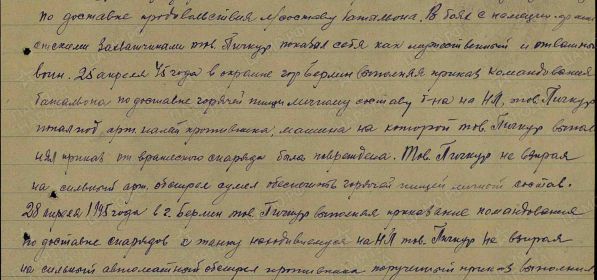 по доставке продовольствия л/составу батальона. В боях с немецко-фаши
стскими захватчиками тов. Пичкур показал себя как мужественный и отважный
воин. 25 апреля 45 года в окраине гор Берлин выполняя приказ командования
батальона по доставке горячей пищи личному составу б-на на НП, тов. Пичкур
попал под арт. налет противника, машина на которой тов. Пичкур выпол
нял приказ от вражеского снаряда была повреждена. Тов. Пичкур не взирая
на сильный арт. обстрел сумел обеспечить горячей пищей личный состав.
28 апреля 1945 года в г. Берлин тов. Пичкур выполняя приказание командования
по доставке снарядов к танку находившемуся на НП тов. Пичкур не взирая
на сильный автоматный обстрел противника порученный приказ выполнил